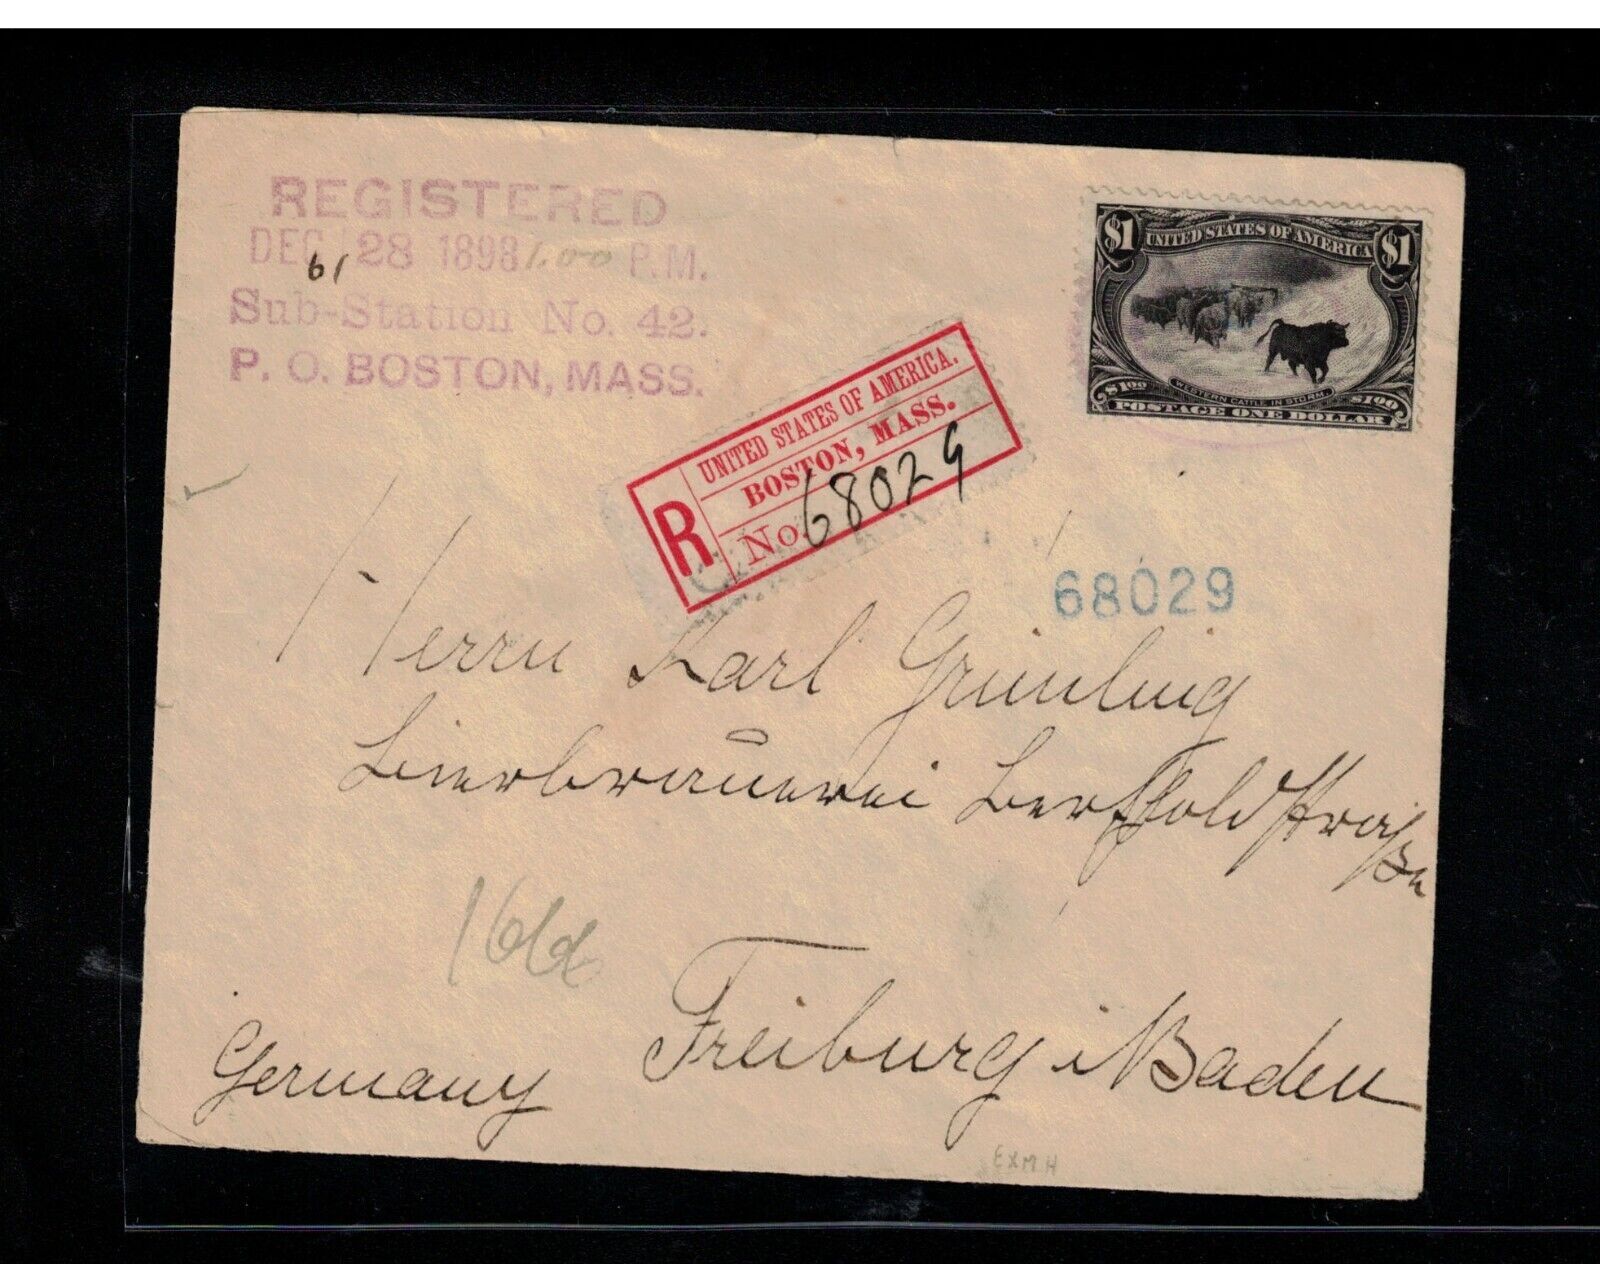 REGISTERED
DEC 28 1898 1.00 P.M.
61
Sub-Station No. 42.
P. O. BOSTON, MASS.
$1 UNITED STATES OF AMERICA $1
WESTERN CATTLE IN STORM.
$1.00 $1.00
POSTAGE ONE DOLLAR
R
UNITED STATES OF AMERICA.
BOSTON, MASS.
No. 68029
68029
Herrn Karl Grünling
Bierbrauerei Berthold Straße
Freiburg i Baden
Germany
EXMH